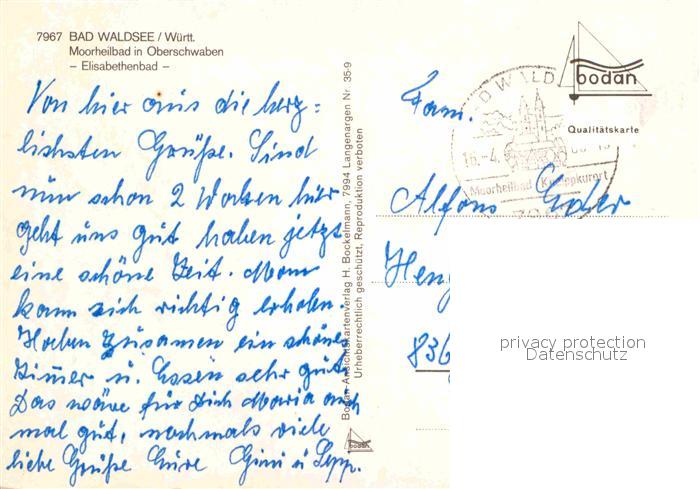 7967 BAD WALDSEE / Württ.
Moorheilbad in Oberschwaben
– Elisabethenbad –
Von hier aus die herz=
lichsten Grüße. Sind
nun schon 2 Wochen hier
geht uns gut haben jetzt
eine schöne Zeit. Man
kann sich richtig erholen.
Haben zusamen ein schönes
Zimer u. Essen sehr gut.
Das wäre für Dich Maria auch
mal gut, nochmals viele
liebe Grüße Eure Gini u Sepp.
Bodan-Ansichtskartenverlag H. Bockelmann, 7994 Langenargen Nr. 35-9
Urheberrechtlich geschützt, Reproduktion verboten
bodan
bodan
Qualitätskarte
D WALD
16.-4.
Moorheilbad Kneippkurort
Fam.
Alfons
Heng
836
privacy protection
Datenschutz